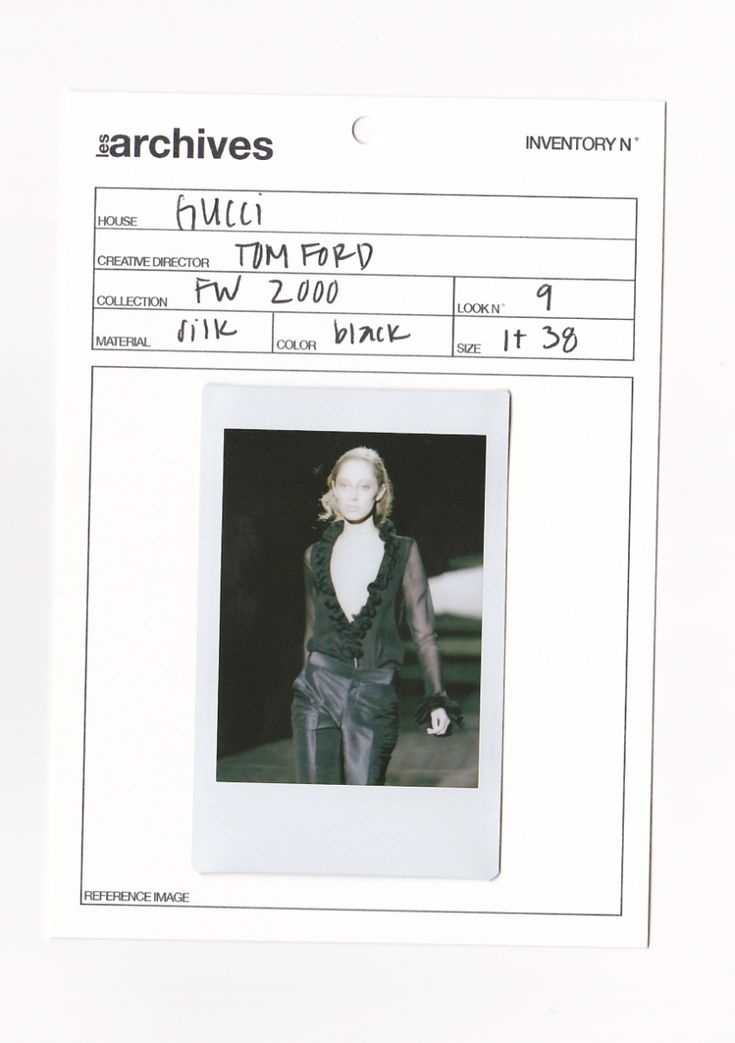 les archives INVENTORY N°
HOUSE GUCCi
CREATIVE DIRECTOR TOM FORD
COLLECTION FW 2000 LOOK N° 9
MATERIAL silk COLOR black SIZE It 38
REFERENCE IMAGE